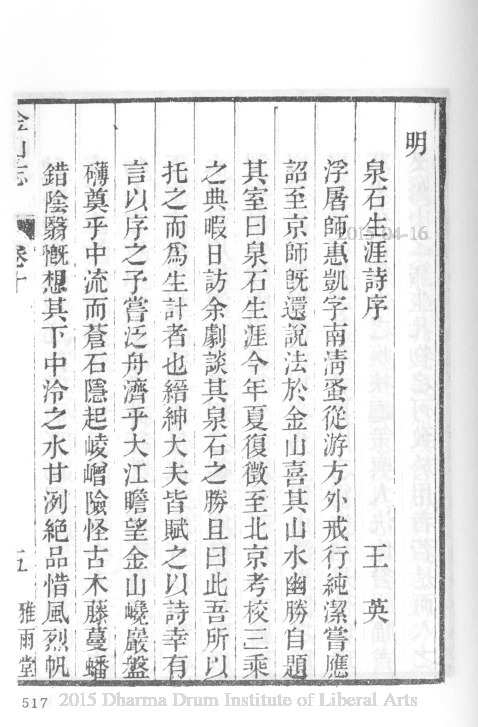 明
泉石生涯詩序
王英
浮屠師惠凱字南淸蚤從游方外戒行純潔嘗應
詔至京師旣還說法於金山喜其山水幽勝自題
其室曰泉石生涯今年夏復徵至北京考校三乘
之典暇日訪余劇談其泉石之勝且曰此吾所以
托之而爲生計者也縉紳大夫皆賦之以詩幸有
言以序之予嘗泛舟濟乎大江瞻望金山巉巖盤
礴奠乎中流而蒼石隱起崚嶒險怪古木藤蔓蟠
錯陰翳慨想其下中泠之水甘洌絕品惜風烈帆
金山志
卷十
五
雅雨堂
2015-04-16
517
2015 Dharma Drum Institute of Liberal Arts